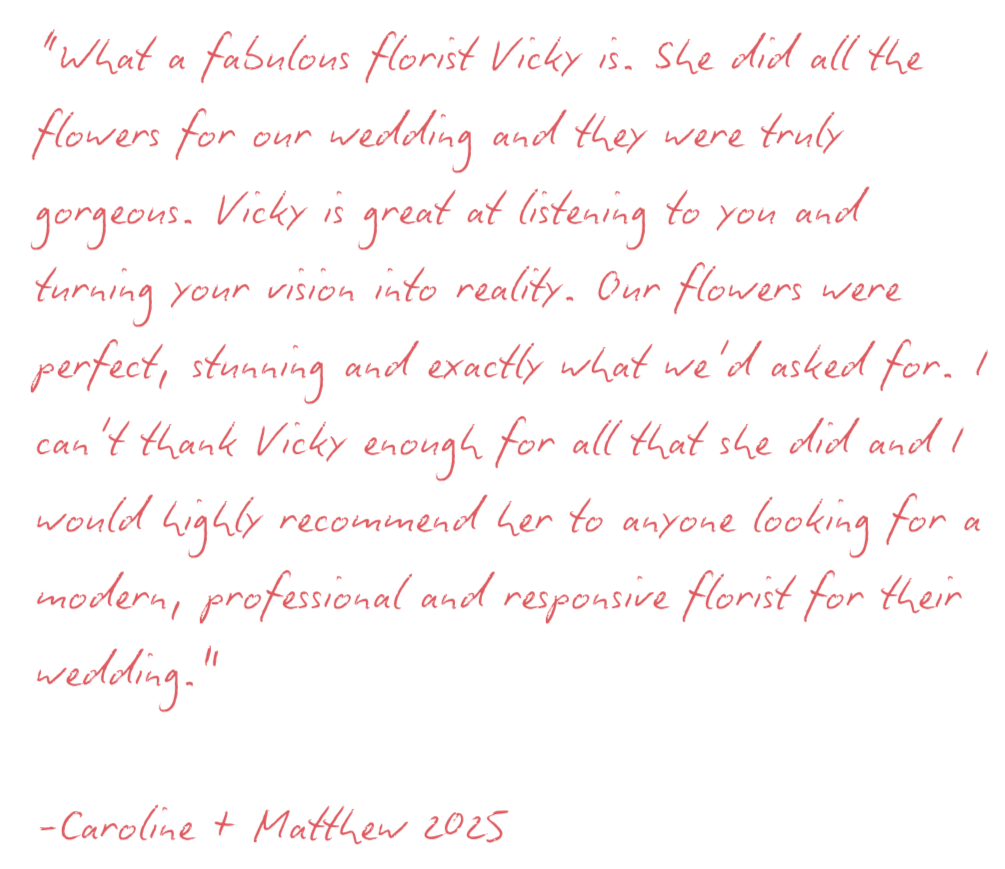 "What a fabulous florist Vicky is. She did all the
flowers for our wedding and they were truly
gorgeous. Vicky is great at listening to you and
turning your vision into reality. Our flowers were
perfect, stunning and exactly what we'd asked for. I
can't thank Vicky enough for all that she did and I
would highly recommend her to anyone looking for a
modern, professional and responsive florist for their
wedding."
-Caroline + Matthew 2025